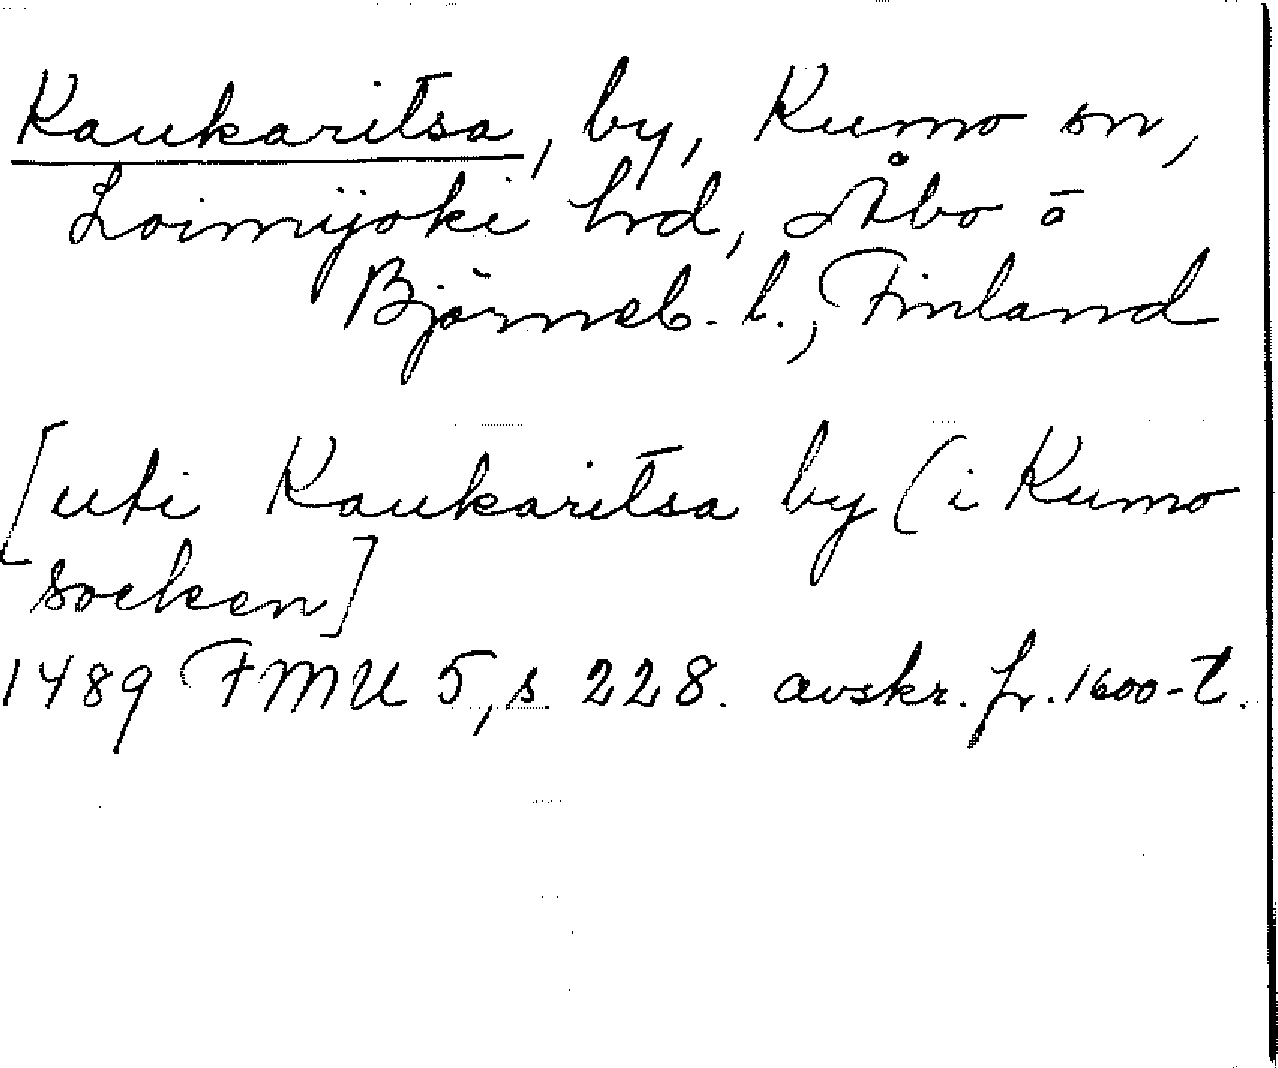 Kaukaritsa, by, Kumo sn,
Loimijoki hrd, Åbo o
Björneb. l., Finland
[uti Kaukaritsa by (i Kumo
socken]
1489 FMU 5, s 228. avskr. fr. 1600-t.